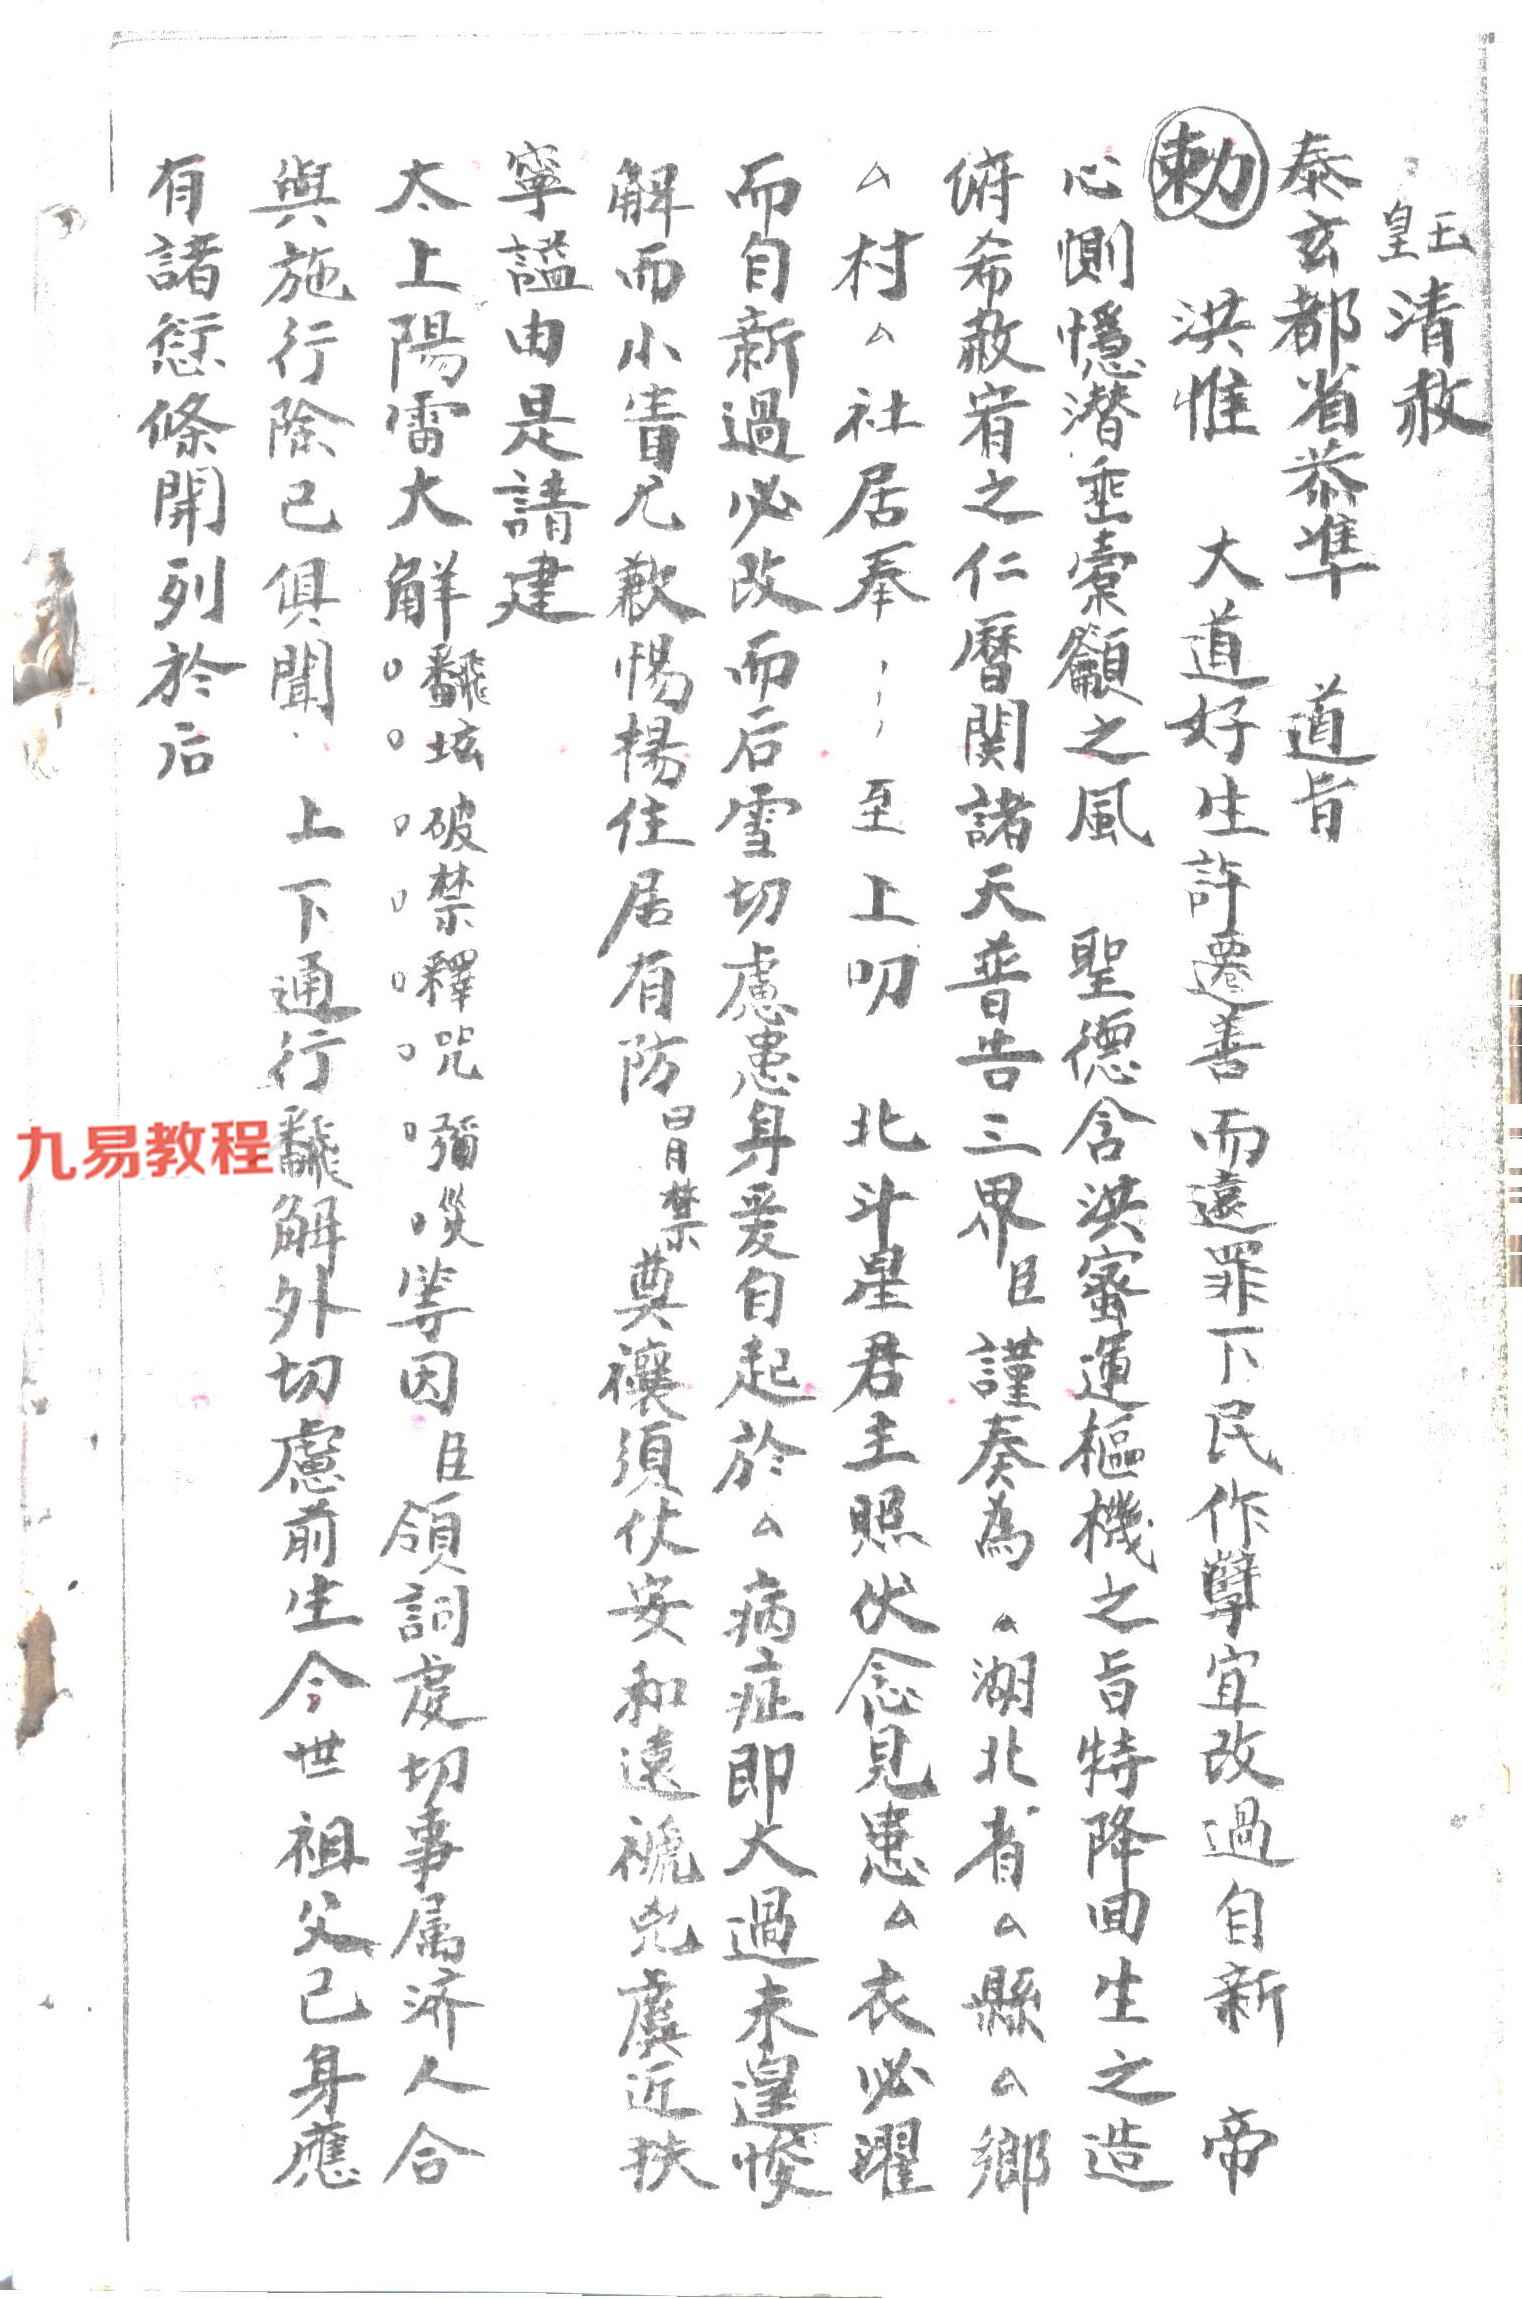 玉皇清赦
泰玄都省恭準　道旨
勅　洪惟　大道好生許遷善而遠罪下民作孽宜改過自新　帝
心惻隱潜垂橐籲之風　聖德含洪密運樞機之旨特降回生之造
俯希赦宥之仁曆関諸天普告三界臣謹奏為△湖北省△縣△鄉
△村△社居奉、、、至上叨　北斗星君主照伏念見患△衣必濯
而自新過必改而后雪切慮患身爰自起於△病症即大過未遑悛
解而小眚尤歉惕楊住居有防冒禁奠禳須伏安和遠褫兇虞近扶
寧謐由是請建
太上陽雷大解○飜坛○破○禁○釋○咒○彌○災等因臣領詞虔切事属济人合
與施行除已俱聞　上下通行飜解外切慮前生今世祖父己身應
有諸愆條開列於后
九易教程